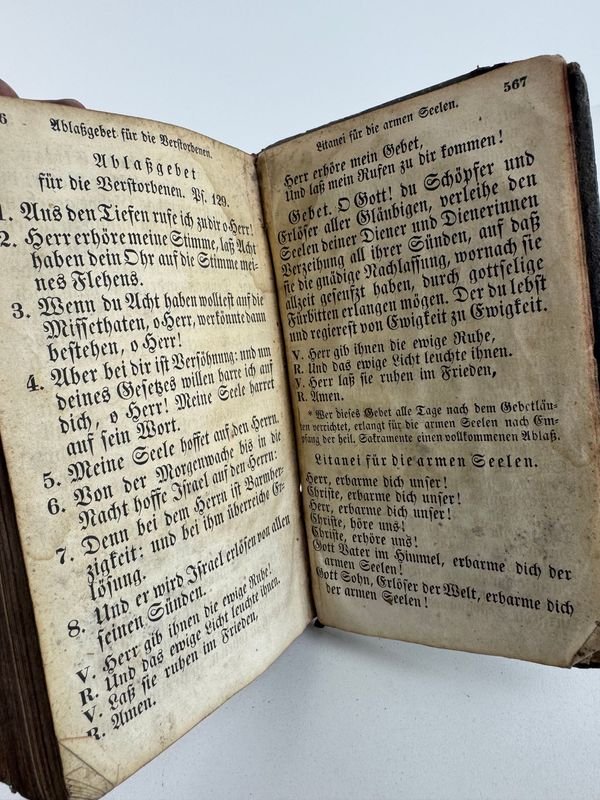 6
Ablaßgebet für die Verstorbenen.
Ablaßgebet
für die Verstorbenen. Ps. 129.
1. Aus den Tiefen rufe ich zu dir o Herr!
2. Herr erhöre meine Stimme, laß Acht
haben dein Ohr auf die Stimme mei-
nes Flehens.
3. Wenn du Acht haben wolltest auf die
Missethaten, o Herr, wer könnte dann
bestehen, o Herr!
4. Aber bei dir ist Versöhnung: und um
deines Gesetzes willen harre ich auf
dich, o Herr! Meine Seele harret
auf sein Wort.
5. Meine Seele hoffet auf den Herrn.
6. Von der Morgenwache bis in die
Nacht hoffe Israel auf den Herrn:
7. Denn bei dem Herrn ist Barmher-
zigkeit: und bei ihm überreiche Er-
lösung.
8. Und er wird Israel erlösen von allen
seinen Sünden.
V. Herr gib ihnen die ewige Ruhe!
R. Und das ewige Licht leuchte ihnen.
V. Laß sie ruhen im Frieden,
R. Amen.
Litanei für die armen Seelen.
567
Herr erhöre mein Gebet,
Und laß mein Rufen zu dir kommen!
Gebet. O Gott! du Schöpfer und
Erlöser aller Gläubigen, verleihe den
Seelen deiner Diener und Dienerinnen
Verzeihung all ihrer Sünden, auf daß
sie die gnädige Nachlassung, wornach sie
allzeit geseufzt haben, durch gottselige
Fürbitten erlangen mögen. Der du lebst
und regierest von Ewigkeit zu Ewigkeit.
V. Herr gib ihnen die ewige Ruhe,
R. Und das ewige Licht leuchte ihnen.
V. Herr laß sie ruhen im Frieden,
R. Amen.
* Wer dieses Gebet alle Tage nach dem Gebetläu-
ten verrichtet, erlangt für die armen Seelen nach Em-
pfang der heil. Sakramente einen vollkommenen Ablaß.
Litanei für die armen Seelen.
Herr, erbarme dich unser!
Christe, erbarme dich unser!
Herr, erbarme dich unser!
Christe, höre uns!
Christe, erhöre uns!
Gott Vater im Himmel, erbarme dich der
armen Seelen!
Gott Sohn, Erlöser der Welt, erbarme dich
der armen Seelen!